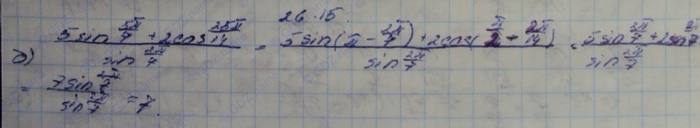 26.15.
д) (5 sin 5π/7 + 2 cos 25π/14) / (sin 2π/7) = (5 sin(π - 2π/7) + 2 cos( /2 + 2π/ )) / (sin 2π/7) = (5 sin 2π/7 + 2 sin) / (sin 2π/7)
= (7 sin 2π/7) / (sin 2π/7) = 7